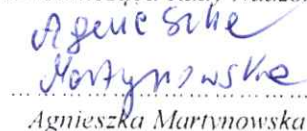 Agnieszka
Martynowska
Agnieszka Martynowska